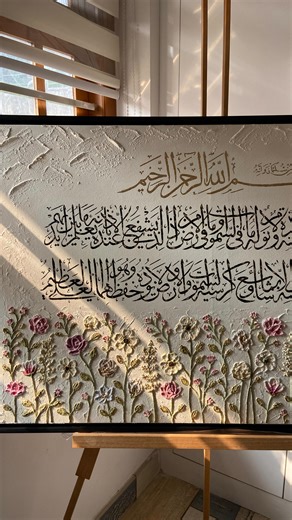 الله الرحمن الرحيم
ولا نوم له ما في السموات وما في الارض من ذا الذي يشفع عنده الا باذنه يعلم ما بين
بما شاء وسع كرسيه السموات والارض ولا يؤده حفظهما وهو العلي العظيم